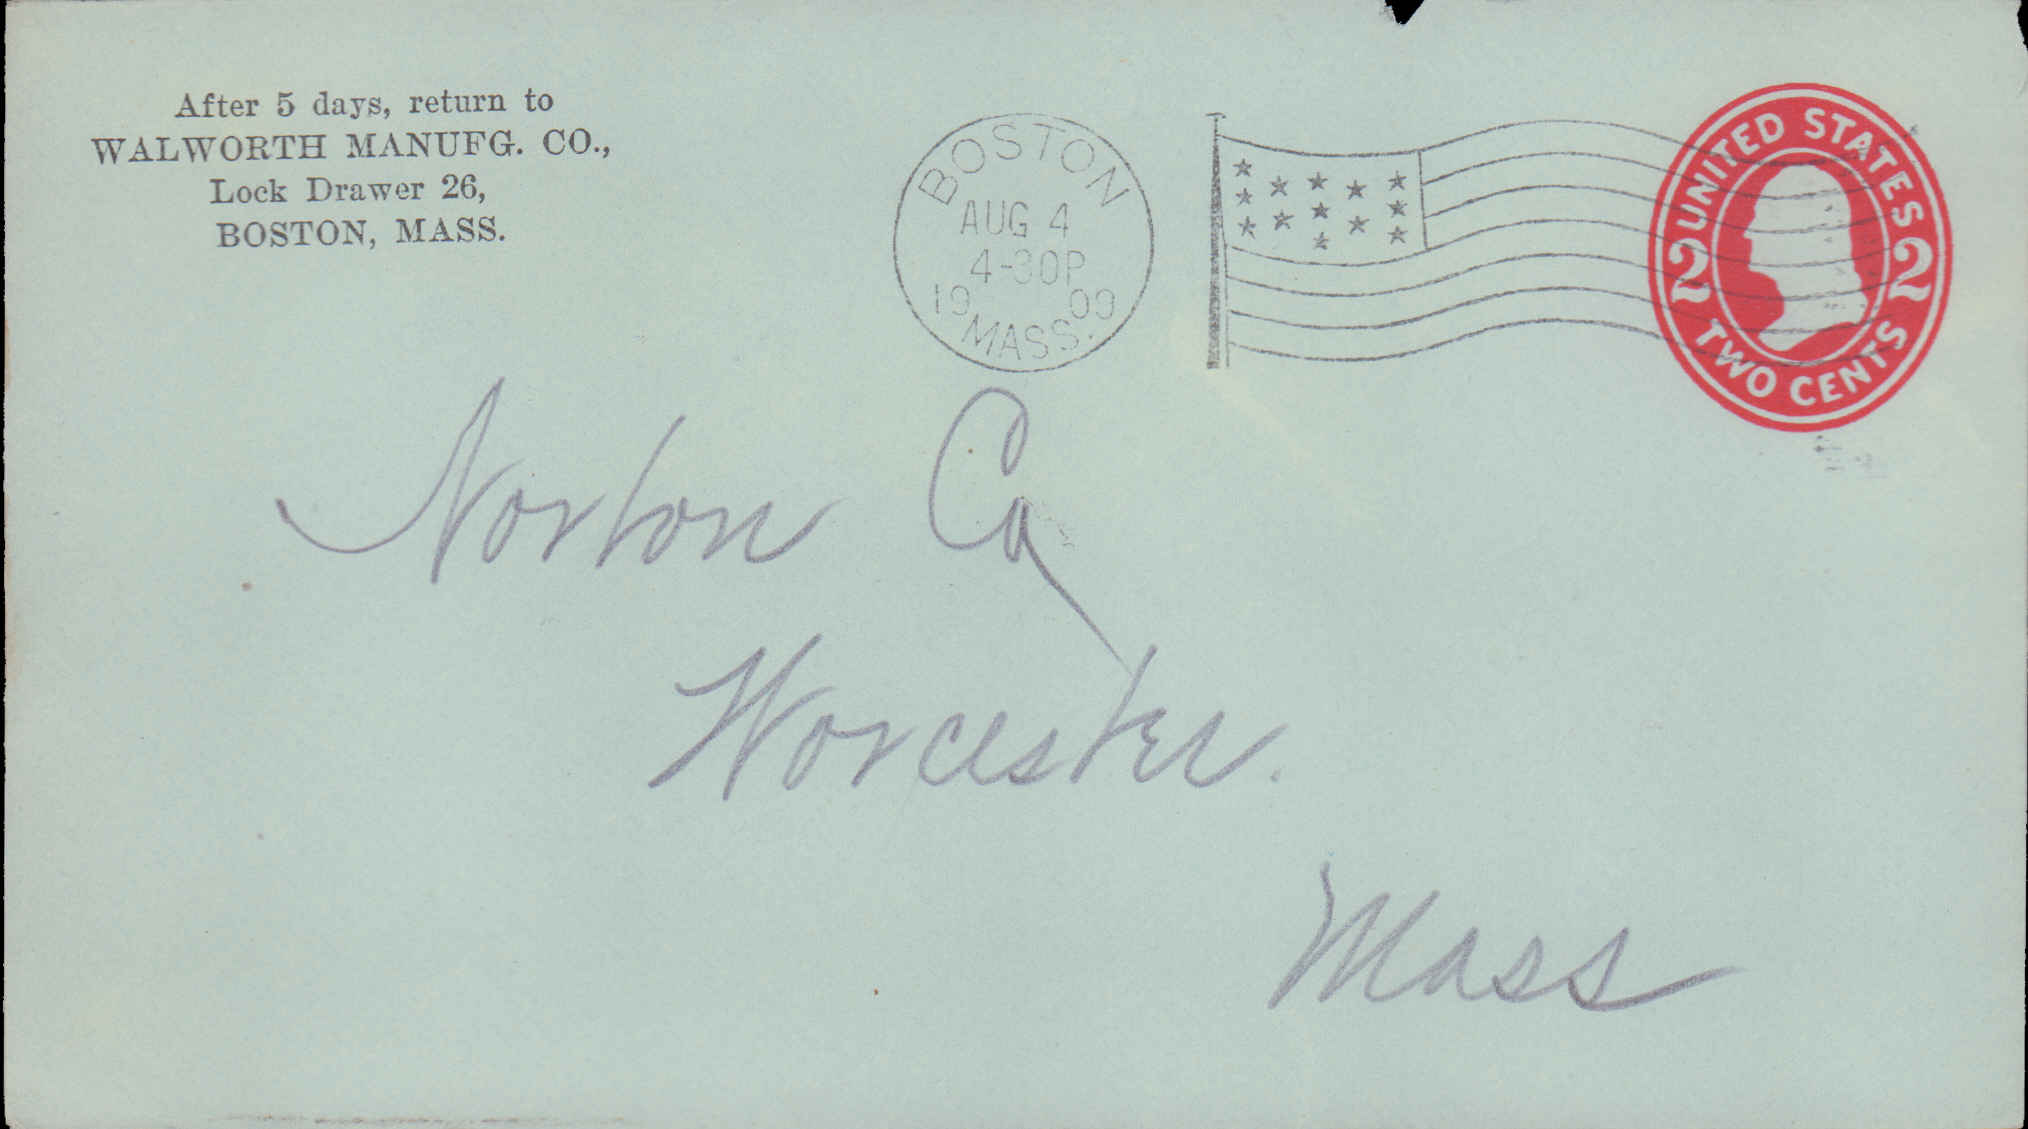 After 5 days, return to
WALWORTH MANUFG. CO.,
Lock Drawer 26,
BOSTON, MASS.
BOSTON
AUG 4
4-30P
19 09
MASS.
UNITED STATES
2 2
TWO CENTS
Norton Co
Worcester.
Mass